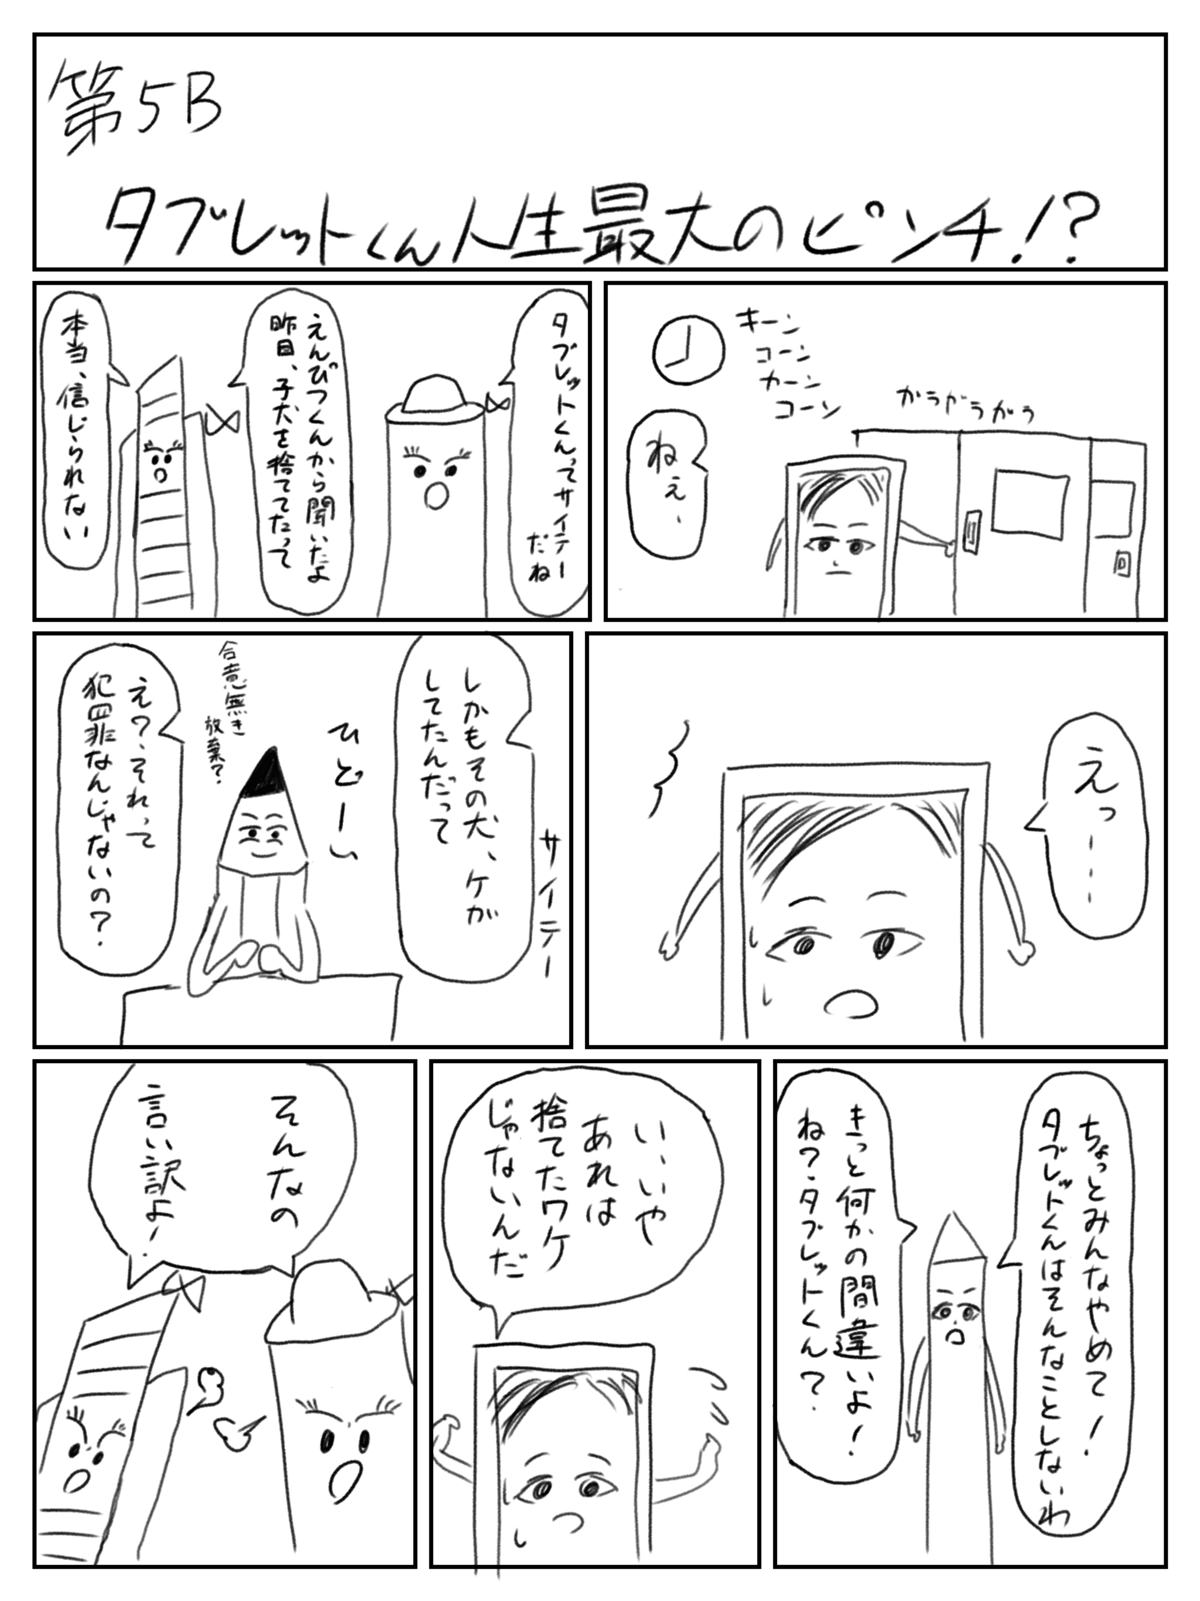 第5B
タブレットくん人生最大のピンチ!?
キーン
コーン
カーン
コーン
ガラガラガラ
ねぇ、
タブレットくんってサイテー
だね
えんぴつくんから聞いたよ
昨日、子犬を捨ててたって
本当、信じられない
えっ---
しかもその犬、ケガ
してたんだって
サイテー
ひどーい
合意無き
放棄?
え?、それって
犯罪なんじゃないの?
ちょっとみんなやめて!
タブレットくんはそんなことしないわ
きっと何かの間違いよ!
ね?タブレットくん?
い、いや
あれは
捨てたワケ
じゃないんだ
そんなの
言い訳よ!